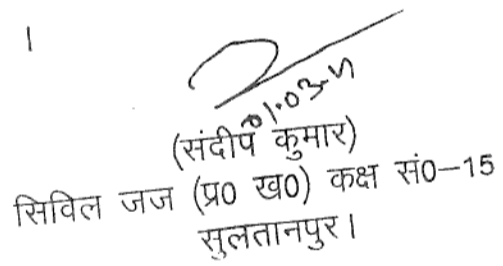 ।
(संदीप कुमार)
सिविल जज (प्र0 ख0) कक्ष सं0–15
सुलतानपुर।